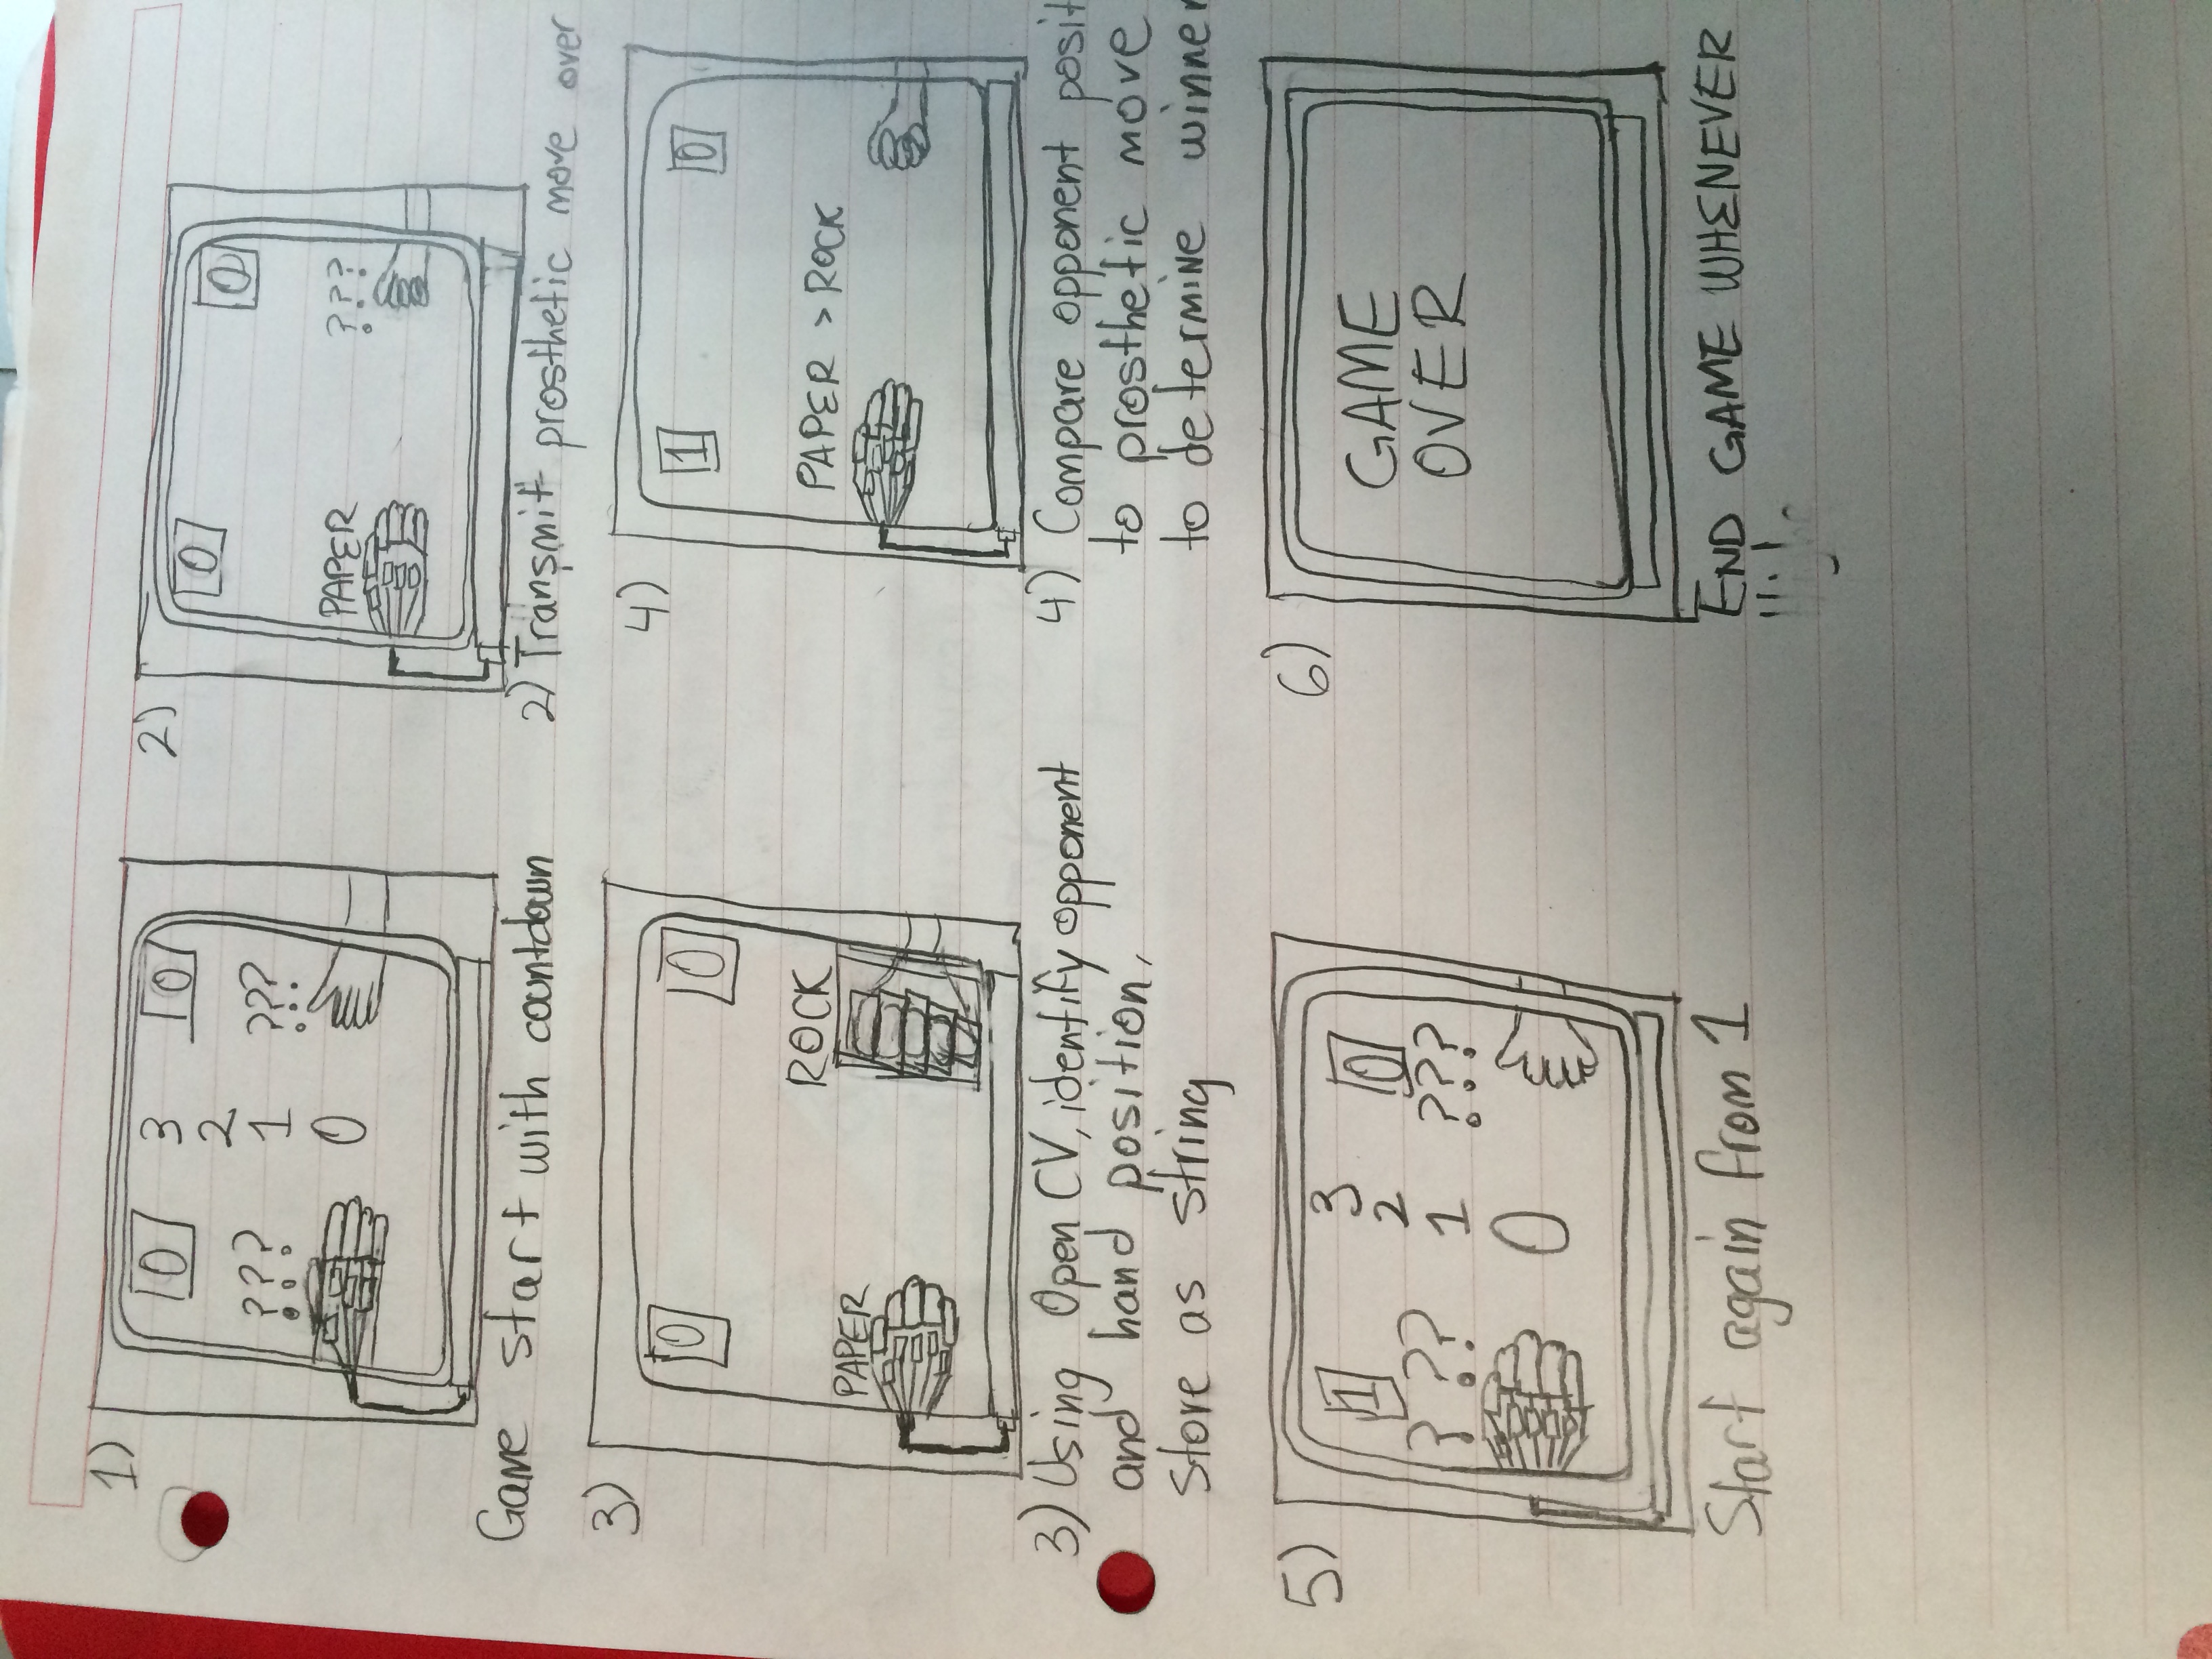 1)
0 3 0
2
??? 1 ???
0
Game start with countdown
2)
0
0
PAPER ???
2) Transmit prosthetic move over
3)
0 0
ROCK
PAPER
3) Using Open CV, identify opponent
and hand position,
store as string
4)
1 0
PAPER > ROCK
4) Compare opponent posit
to prosthetic move
to determine winner
5)
1 3 0
2
? ?? 1 ???
0
Start again from 1
6)
GAME
OVER
END GAME WHENEVER